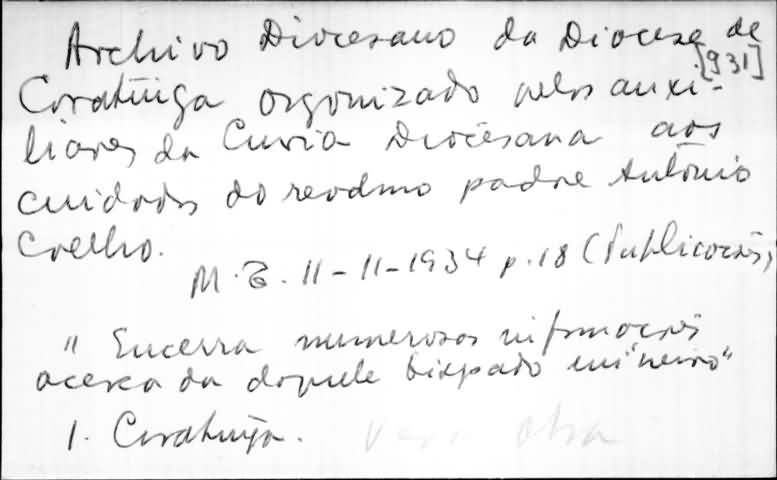 Archivo Diocesano da Diocese de
[931]
Caratinga organizado pelos auxi-
liares da Curia Diocesana aos
cuidados do revdmo padre Antônio
Coelho.
M.G. 11-11-1934 p.18 (Publicações)
"Encerra numerosas informações
acerca da daquele bispado mineiro"
1. Caratinga. Ver obra